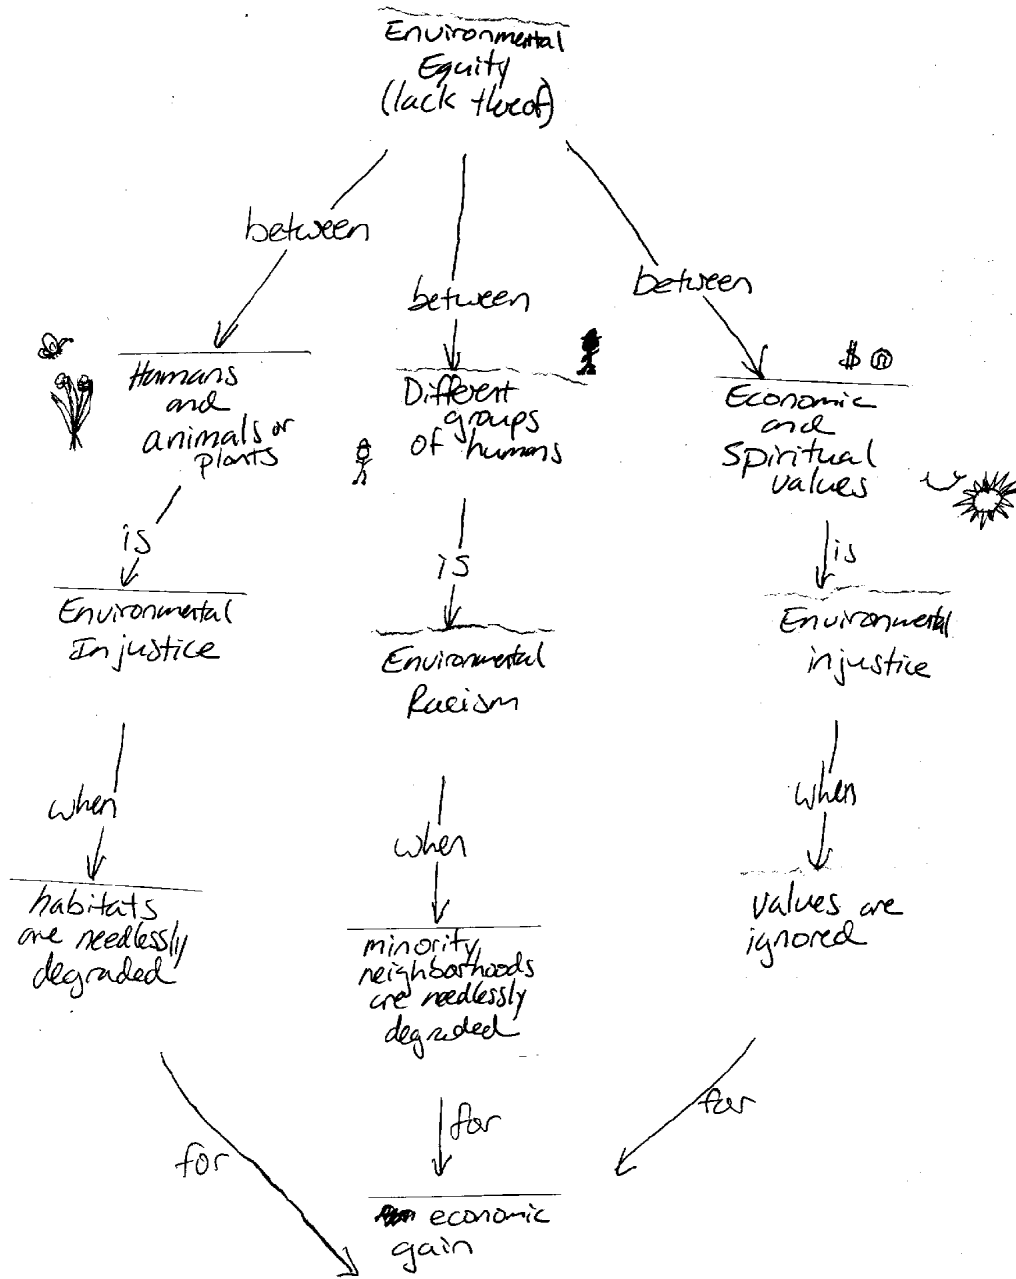 Environmental
Equity
(lack thereof)
between
between
between
$
Humans
and
animals or
plants
Different
groups
of humans
Economic
and
Spiritual
values
is
is
is
Environmental
Injustice
Environmental
Racism
Environmental
injustice
when
when
when
habitats
are needlessly
degraded
minority
neighborhoods
are needlessly
degraded
values are
ignored
for
for
for
economic
gain